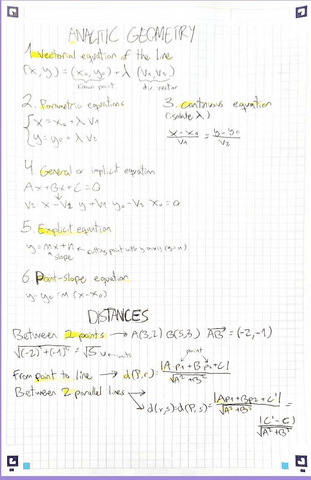 ANALITIC GEOMETRY
1. Vectorial equation of the line
(x, y) = (x₀, y₀) + λ (v₁, v₂)
known point dir. vector
2. Parametric equations
{ x = x₀ + λ v₁
{ y = y₀ + λ v₂
3. continuous equation
(isolate λ)
x - x₀ / v₁ = y - y₀ / v₂
4. General or implicit equation
Ax + Bx + C = 0
v₂ x - v₁ y + v₁ y₀ - v₂ x₀ = 0
5. Explicit equation
y = mx + n cutting point with y axis (y = n)
slope
6. Point-slope equation
y - y₀ = m (x - x₀)
DISTANCES
Between 2 points → A(3,2) B(5,3) AB = (-2,-1)
√(-2)² + (-1)² = √5 units
point
From point to line → d(P,r) = |A p₁ + B p₂ + C| / √A² + B²
Between 2 parallel lines
d(r,s) = d(P,s) = |Ap₁ + Bp₂ + C'| / √A² + B² =
|C' - C| / √A² + B²